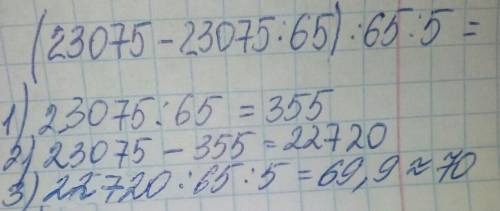 (23075 - 23075:65):65:5=
1) 23075:65 = 355
2) 23075 - 355 = 22720
3) 22720:65:5 = 69,9 ≈ 70